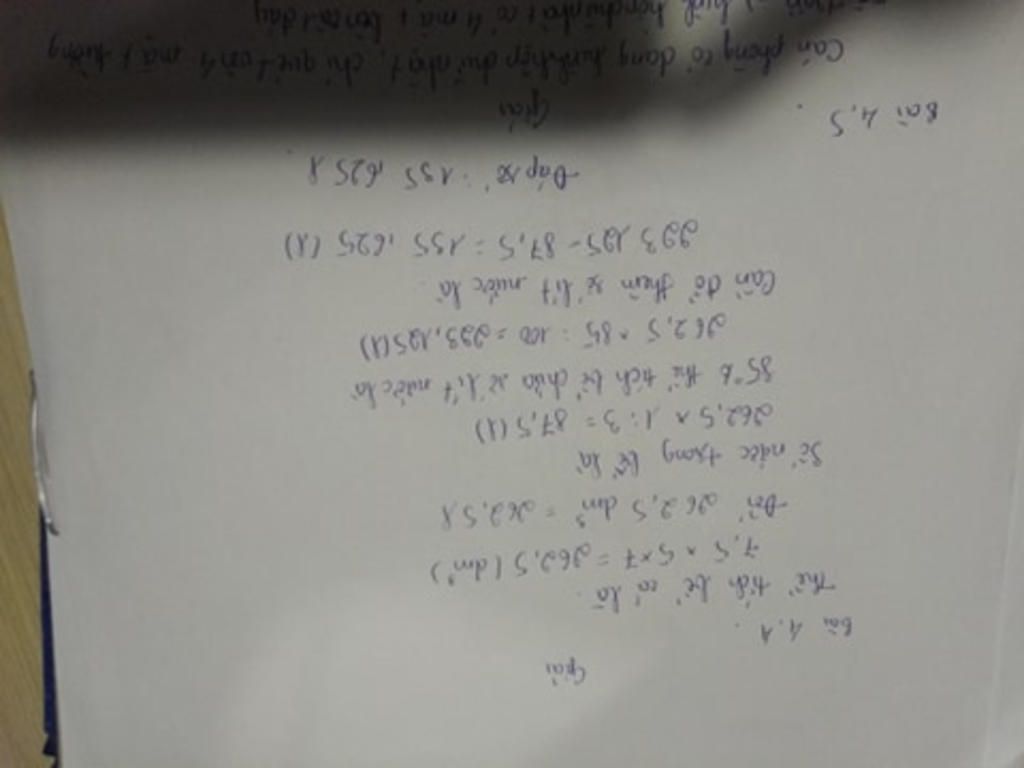 Giải
Bài 4.1.
Thể tích bể cá là.
7,5 × 5 × 7 = 262,5 (dm³)
Đổi 262,5 dm³ = 262,5 l
Số nước trong bể là
262,5 × 1 : 3 = 87,5 (l)
85% thể tích bể chứa số lít nước là
262,5 × 85 : 100 = 223,125 (l)
Cần đổ thêm số lít nước là.
223,125 - 87,5 = 135,625 (l)
Đáp số : 135,625 l
Bài 4,5
Giải
Căn phòng có dạng hình hộp chữ nhật, chỉ quét vôi 4 mặt tường
hình hộp chữ nhật có 4 mặt bên và 1 đáy